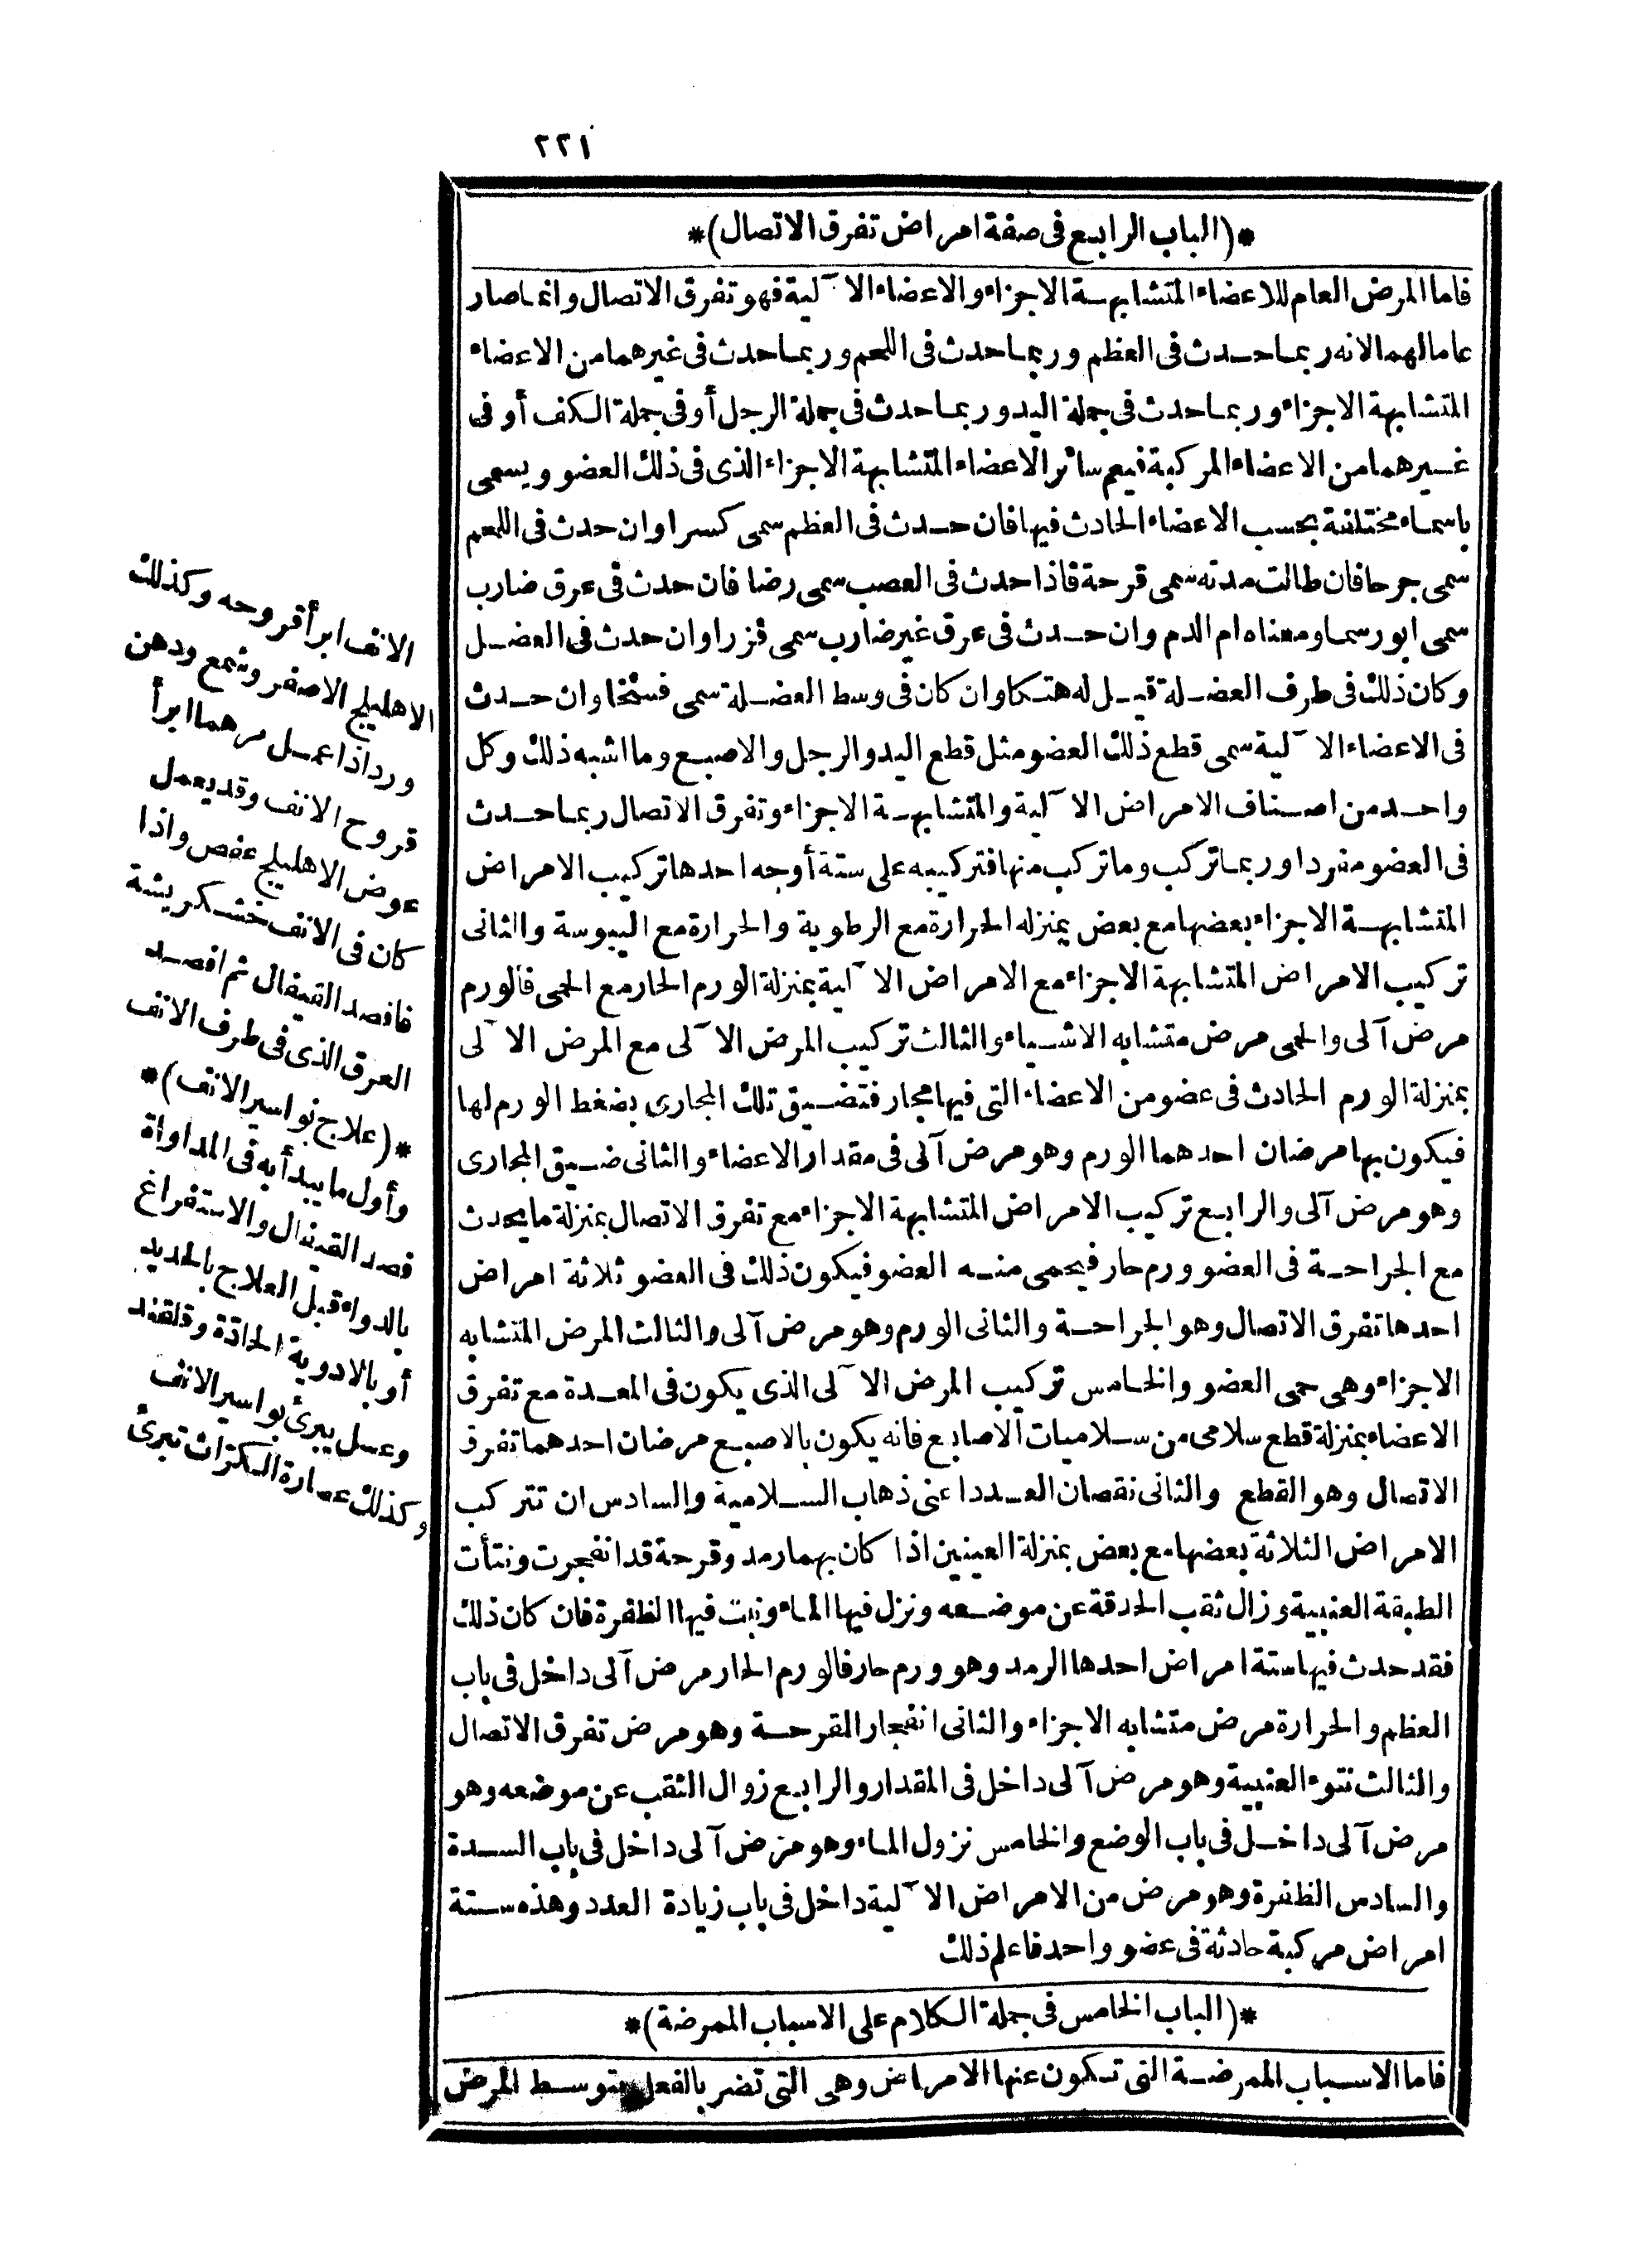 ٢٢١
*(الباب الرابع فى صفة امراض تفرق الاتصال)*
فاما المرض العام للاعضاء المتشابهة الاجزاء والاعضاء الا ٓلية فهو تفرق الاتصال وانما صار
عاما لهما لانه ربما حدث فى العظم وربما حدث فى اللحم وربما حدث فى غيرهما من الاعضاء
المتشابهة الاجزاء وربما حدث فى جملة اليد وربما حدث فى جملة الرجل أو فى جملة الكف أو فى
غيرهما من الاعضاء المركبة فيعم سائر الاعضاء المتشابهة الاجزاء الذى فى ذلك العضو ويسمى
باسماء مختلفة بحسب الاعضاء الحادث فيها فان حدث فى العظم سمى كسرا وان حدث فى اللحم
سمى جرحا فان طالت مدته سمى قرحة فاذا حدث فى العصب سمى رضا فان حدث فى عرق ضارب
سمى ابورسما ومعناه ام الدم وان حدث فى عرق غير ضارب سمى فزرا وان حدث فى العضل
وكان ذلك فى طرف العضلة قيل له هتكا وان كان فى وسط العضلة سمى فسخا وان حدث
فى الاعضاء الا ٓلية سمى قطع ذلك العضو مثل قطع اليد والرجل والاصبع وما اشبه ذلك وكل
واحد من اصناف الامراض الا ٓلية والمتشابهة الاجزاء وتفرق الاتصال ربما حدث
فى العضو مفردا وربما تركب وما تركب منها فتركيبه على ستة أوجه احدها تركيب الامراض
المتشابهة الاجزاء بعضها مع بعض بمنزله الحرارة مع الرطوبة والحرارة مع اليبوسة والثانى
تركيب الامراض المتشابهة الاجزاء مع الامراض الا ٓلية بمنزلة الورم الحار مع الحمى فالورم
مرض آلى والحمى مرض متشابه الاشياء والثالث تركيب المرض الا ٓلى مع المرض الا ٓلى
بمنزلة الورم الحادث فى عضو من الاعضاء التى فيها مجار فتضيق تلك المجارى بضغط الورم لها
فيكون بها مرضان احدهما الورم وهو مرض آلى فى مقدار الاعضاء والثانى ضيق المجارى
وهو مرض آلى والرابع تركيب الامراض المتشابهة الاجزاء مع تفرق الاتصال بمنزلة ما يحدث
مع الجراحة فى العضو ورم حار فيحمى منه العضو فيكون ذلك فى العضو ثلاثة امراض
احدها تفرق الاتصال وهو الجراحة والثانى الورم وهو مرض آلى والثالث المرض المتشابه
الاجزاء وهى حمى العضو والخامس تركيب المرض الا ٓلى الذى يكون فى المعدة مع تفرق
الاعضاء بمنزلة قطع سلامى من سلاميات الاصابع فانه يكون بالاصبع مرضان احدهما تفرق
الاتصال وهو القطع والثانى نقصان العدد اعنى ذهاب السلامية والسادس ان تتركب
الامراض الثلاثة بعضها مع بعض بمنزلة العينين اذا كان بهما رمد وقرحة قد انفجرت ونتأت
الطبقة العنبية وزال ثقب الحدقة عن موضعه ونزل فيها الماء ونبت فيها الظفرة فان كان ذلك
فقد حدث فيها ستة امراض احدها الرمد وهو ورم حار فالورم الحار مرض آلى داخل فى باب
العظم والحرارة مرض متشابه الاجزاء والثانى انفجار القرحة وهو مرض تفرق الاتصال
والثالث نتوء العنبية وهو مرض آلى داخل فى المقدار والرابع زوال الثقب عن موضعه وهو
مرض آلى داخل فى باب الوضع والخامس نزول الماء وهو مرض آلى داخل فى باب السدة
والسادس الظفرة وهو مرض من الامراض الا ٓلية داخل فى باب زيادة العدد وهذه ستة
امراض مركبة حادثة فى عضو واحد فاعلم ذلك
*(الباب الخامس فى جملة الكلام على الاسباب الممرضة)*
فاما الاسباب الممرضة التى تكون عنها الامراض وهى التى تضر بالفعل بتوسط المرض
الانف ابرأ قروحه وكذلك
الاهليلج الاصفر وشمع ودهن
ورد اذا عمل مرهما ابرأ
قروح الانف وقد يعمل
عوض الاهليلج عفص واذا
كان فى الانف خشكريشة
فافصد القيفال ثم افصد
العرق الذى فى طرف الانف
*(علاج بواسير الانف)*
وأول ما يبدأ به فى المداواة
فصد القيفال والاستفراغ
بالدواء قبل العلاج بالحديد
أو بالادوية الحادة وقلقند
وعسل يبرئ بواسير الانف
وكذلك عصارة الكراث تبرئ